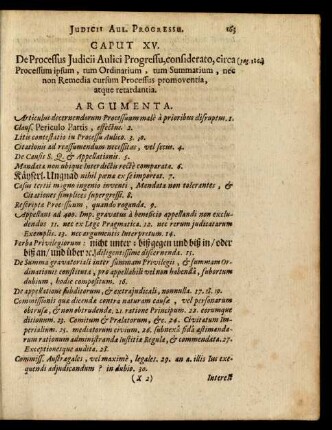 JUDICII AUL. PROGRESSU. 163
CAPUT XV.
De Processus Judicii Aulici Progressu, considerato, circa
Processum ipsum, tum Ordinarium, tum Summatium, nec
non Remedia cursum Processus promoventia,
atque retardantia.
ARGUMENTA.
Articulus decernendorum Processuum malè à prioribus disruptus. 1.
Claus. Periculo Partis, effectus. 2.
Litis contestatio in Processu Aulico. 3.
Citationis ad reassumendum necessitas, vel secus. 4.
De Causis S. Q. & Appellationis. 5.
Mandata non ubique Interdictis rectè comparata. 6.
Käyserl. Ungnad nihil pœna ex se importat. 7.
Casus tertii migni ingenio invenei, Mandata non tolerantes, &
Citationes simplices supergressi. 8.
Rescripta Processuum, quando roganda. 9.
Appellans ad 400. Imp. gravatus à beneficio appellandi non exclu-
dendus 11. nec ex Lege Pragmatica. 12. nec rerum judicatarum
Exemplis. 13. nec argumentis Interpretum. 14.
Verba Privilegiorum: nicht unter: biß gegen und biß in/ oder
biß an/ und über diligentissimè discernenda. 15.
De Summa gravatoriali inter summam Privilegii, & summam Or-
dinationis constituta, pro appellabili vel non habendâ, subortum
dubium, hodie compositum. 16.
De appellatione subditorum, & extrajudiciali, nonnulla. 17. 18. 19.
Commissionis quæ dicenda contra naturam causæ, vel personarum
obrusa, & non obtrudenda. 21. ratione Principum. 22. eorumque
ditionum. 23. Comitum & Prælatorum, &c. 24. Civitatum Im-
perialium. 25. mediatorum civium. 26. subnexâ fidâ æstimando-
rum rationum administranda Justitiæ Regulâ, & commendata. 27.
Exceptionesque audita. 28.
Commiss. Austrægales, vel maximè, legales. 29. an a. illis lux exe-
quendi adjudicandum? in dubio. 30.
(X 2) Interest